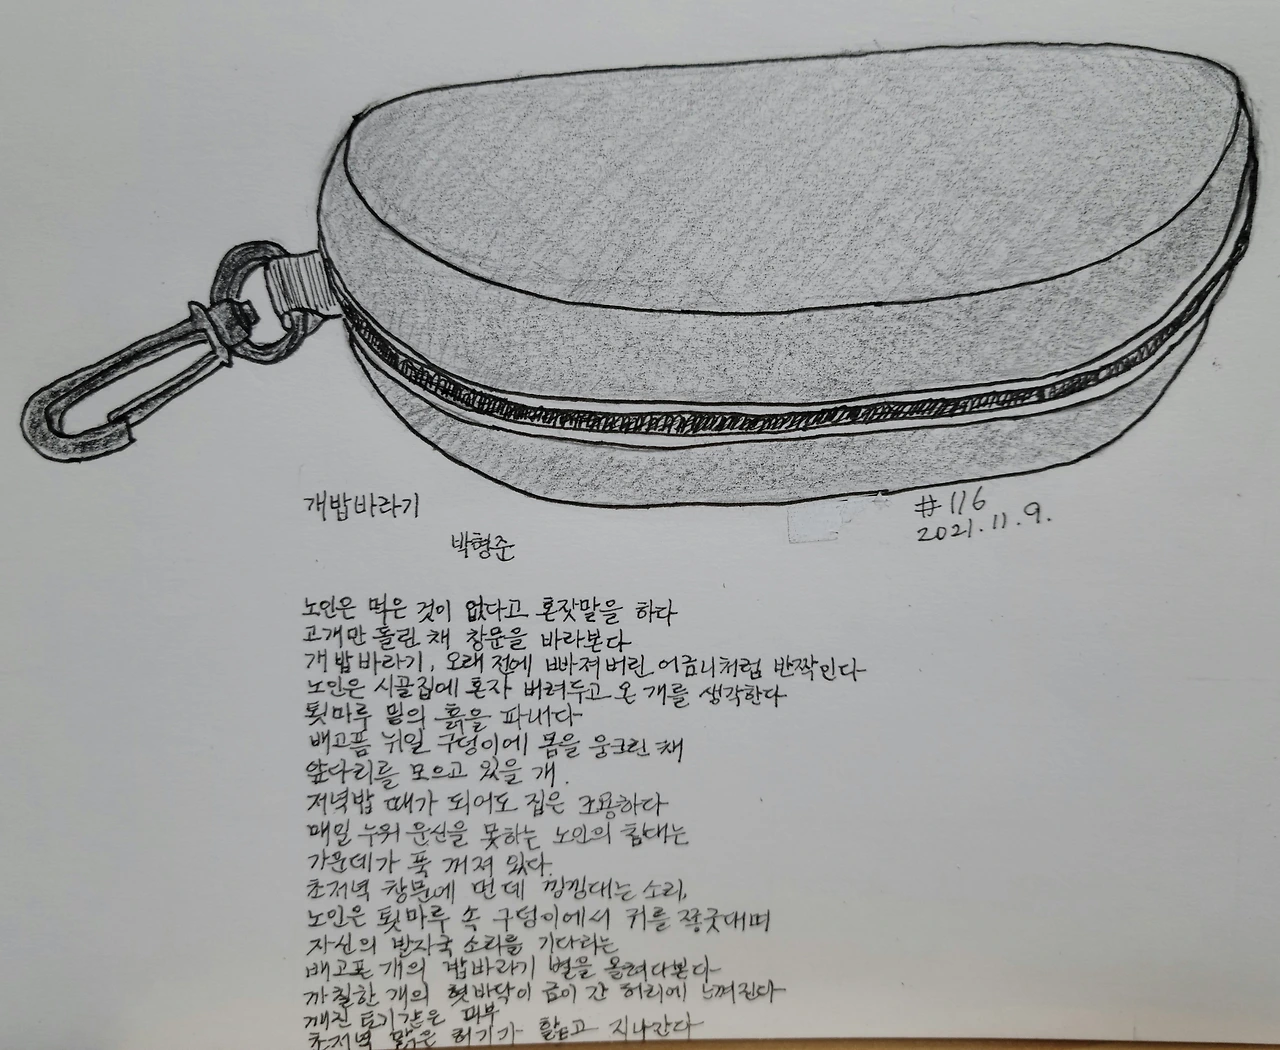 개밥바라기
박형준
#116
2021.11.9.
노인은 먹은 것이 없다고 혼잣말을 하다
고개만 돌린 채 창문을 바라본다
개밥바라기, 오래 전에 빠져버린 어금니처럼 반짝인다
노인은 시골집에 혼자 버려두고 온 개를 생각한다
툇마루 밑의 흙을 파내다
배고픔 뉘일 구덩이에 몸을 웅크린 채
앞다리를 모으고 있을 개.
저녁밥 때가 되어도 집은 조용하다
매일 누워 운신을 못하는 노인의 침대는
가운데가 푹 꺼져 있다.
초저녁 창문에 먼 데 낑낑대는 소리,
노인은 툇마루 속 구덩이에서 귀를 쫑긋대며
자신의 발자국 소리를 기다리는
배고픈 개의 밥바라기 별을 올려다본다
까칠한 개의 혓바닥이 금이 간 허리에 느껴진다
깨진 토기같은 피부
초저녁 맑은 허기가 핥고 지나간다